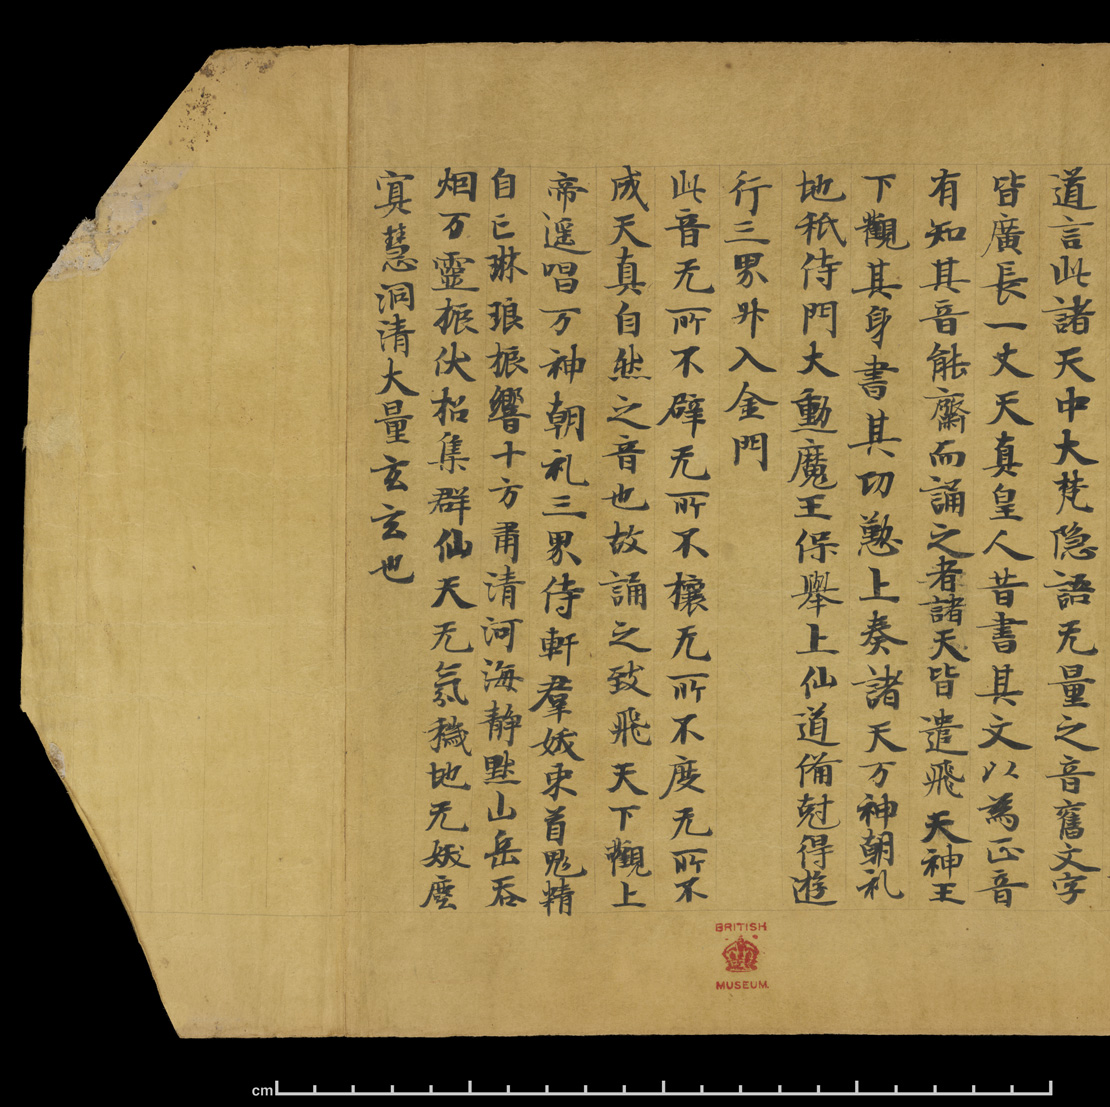 道言此諸天中大梵隐語无量之音舊文字
皆廣長一丈天真皇人昔書其文以為正音
有知其音能齋而誦之者諸天皆遣飛天神王
下觀其身書其功懃上奏諸天万神朝礼
地祇侍門大動魔王保舉上仙道俻尅得遊
行三界昇入金門
此音无所不辟无所不攘无所不度无所不
成天真自然之音也故誦之致飛天下觀上
帝遥唱万神朝礼三界侍軒羣妖束首鬼精
自亡琳琅振響十方肅清河海静默山岳吞
烟万靈振伏招集群仙天无氛穢地无妖塵
冥慧洞清大量玄玄也
BRITISH
MUSEUM
cm